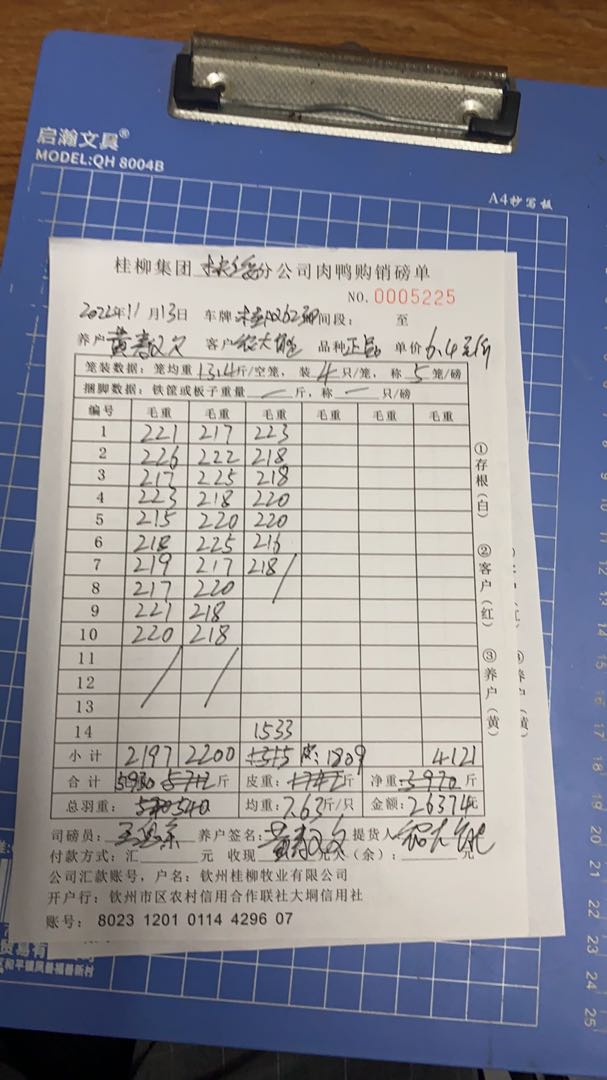 启瀚文具®
MODEL:QH 8004B
A4抄写板
桂柳集团 分公司肉鸭购销磅单
NO.0005225
2022年11月13日 车牌 间段: 至
养户 黄 客户 品种 正 单价 6.4元/斤
笼装数据: 笼均重13.4斤/空笼, 装4只/笼, 称5笼/磅
捆脚数据: 铁筐或板子重量 — 斤, 称 — 只/磅
编号 毛重 毛重 毛重 毛重 毛重 毛重
1 221 217 223
2 226 222 218
3 217 225 218
4 223 218 220
5 215 220 220
6 218 225 216
7 219 217 218
8 217 220
9 221 218
10 220 218
11
12
13
14 1533
小计 2197 2200 1315 皮:1809 4121
合计 5930 5712斤 皮重: 斤 净重:3970斤
总羽重: 540 均重:7.63斤/只 金额:26374元
司磅员: 养户签名:黄 提货人
付款方式: 汇 元 收现 元欠(余): 元
公司汇款账号, 户名: 钦州桂柳牧业有限公司
开户行: 钦州市区农村信用合作联社大垌信用社
账号: 8023 1201 0114 4296 07
①存根(白)
②客户(红)
③养户(黄)
贸易有
区和平镇凤善福善新村
15
16
17
18
19
20
21
22
23
24
25